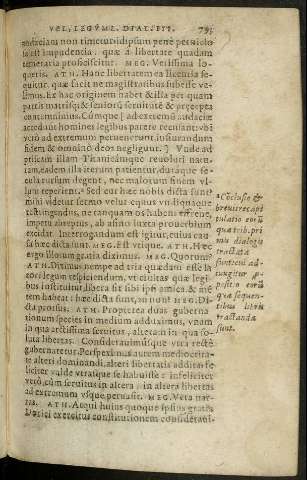 VEL, LEGVME. DIAL. III. 793
audaciam non timet: id ipsum penè perniolo
sa est impudentia. quæ à libertate quadam
temeraria proficiscitur. MEG. Verissima lo-
queris. ATH. Hanc libertatem ea licentia se-
quitur. quæ facit ne magistratibus subesse ve-
limus. Ex hac originem habet & illa per quam
patris matrisq́; & seniorū seruitutē & præcepta
contemnimus. Cúmque ad extremū audaciæ
accedunt homines legibus parere recusant: vbi
verò ad extremum peruenerunt iusiurandum
fidem & omnino deos negligunt. Vnde ad
priscam illam Titanicámque reuoluti natu-
ram, eadem illa iterum patientur, duráque se-
cula rursum degent, nec malorum finem vl-
lum reperient. Sed cur hæc nobis dicta sunt?
mihi videtur sermo velut equus vndiquaque
restringendus, ne tanquam os habens effrene,
impetu abreptus, ab asino iuxta prouerbium
excidat. Interrogandum est igitur, cuius cau-
sa hæc dicta sunt. MEG. Est vtique. ATH. Hæc
ergo illorum gratia diximus. MEG. Quorum?
ATH. Diximus nempe ad tria quædam esse la-
tori legum respiciendum. vt ciuitas quæ legi-
bus instituitur libera sit sibi ipsi amica, & mē-
tem habeat: hæc dicta sunt, an non? MEG. Di-
cta prorsus. ATH. Propterea duas guberna-
tionum species in medium adduximus, vnam
in qua arctissima seruitus, alteram in qua so-
luta libertas. Considerauimúsque vtra rectè
gubernaretur. Perspeximus autem mediocrita-
te alteri dominandi, alteri libertatis addita fe-
liciter valde vtrásque se habuisse: infeliciter
verò, cùm seruitus in altera, in altera libertas
ad extremum vsque peruasit. MEG. Vera nar-
ras. ATH. Atqui huius quoque ipsius gratia
Dorici exercitus constitutionem considerauì-
Cōclusio &
breuis recapi
tulatio eorū
quæ trib. pri
mis dialogis
tractata
sunt: cui ad-
iungitur
positio eorū
quæ sequen-
tibus libris
tractanda
sunt.